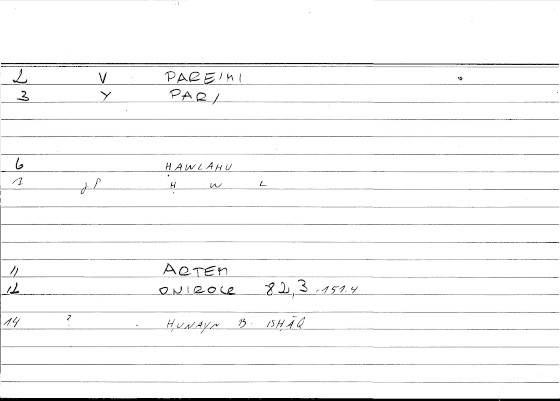 2 V PAREIMI
3 Y PAR/
6 ḤAWLAHU
1 gP Ḥ W L
11 ARTEM
12 ONIROCR 82,3.151.4
14 ? ḤUNAYN B. ISḤĀQ